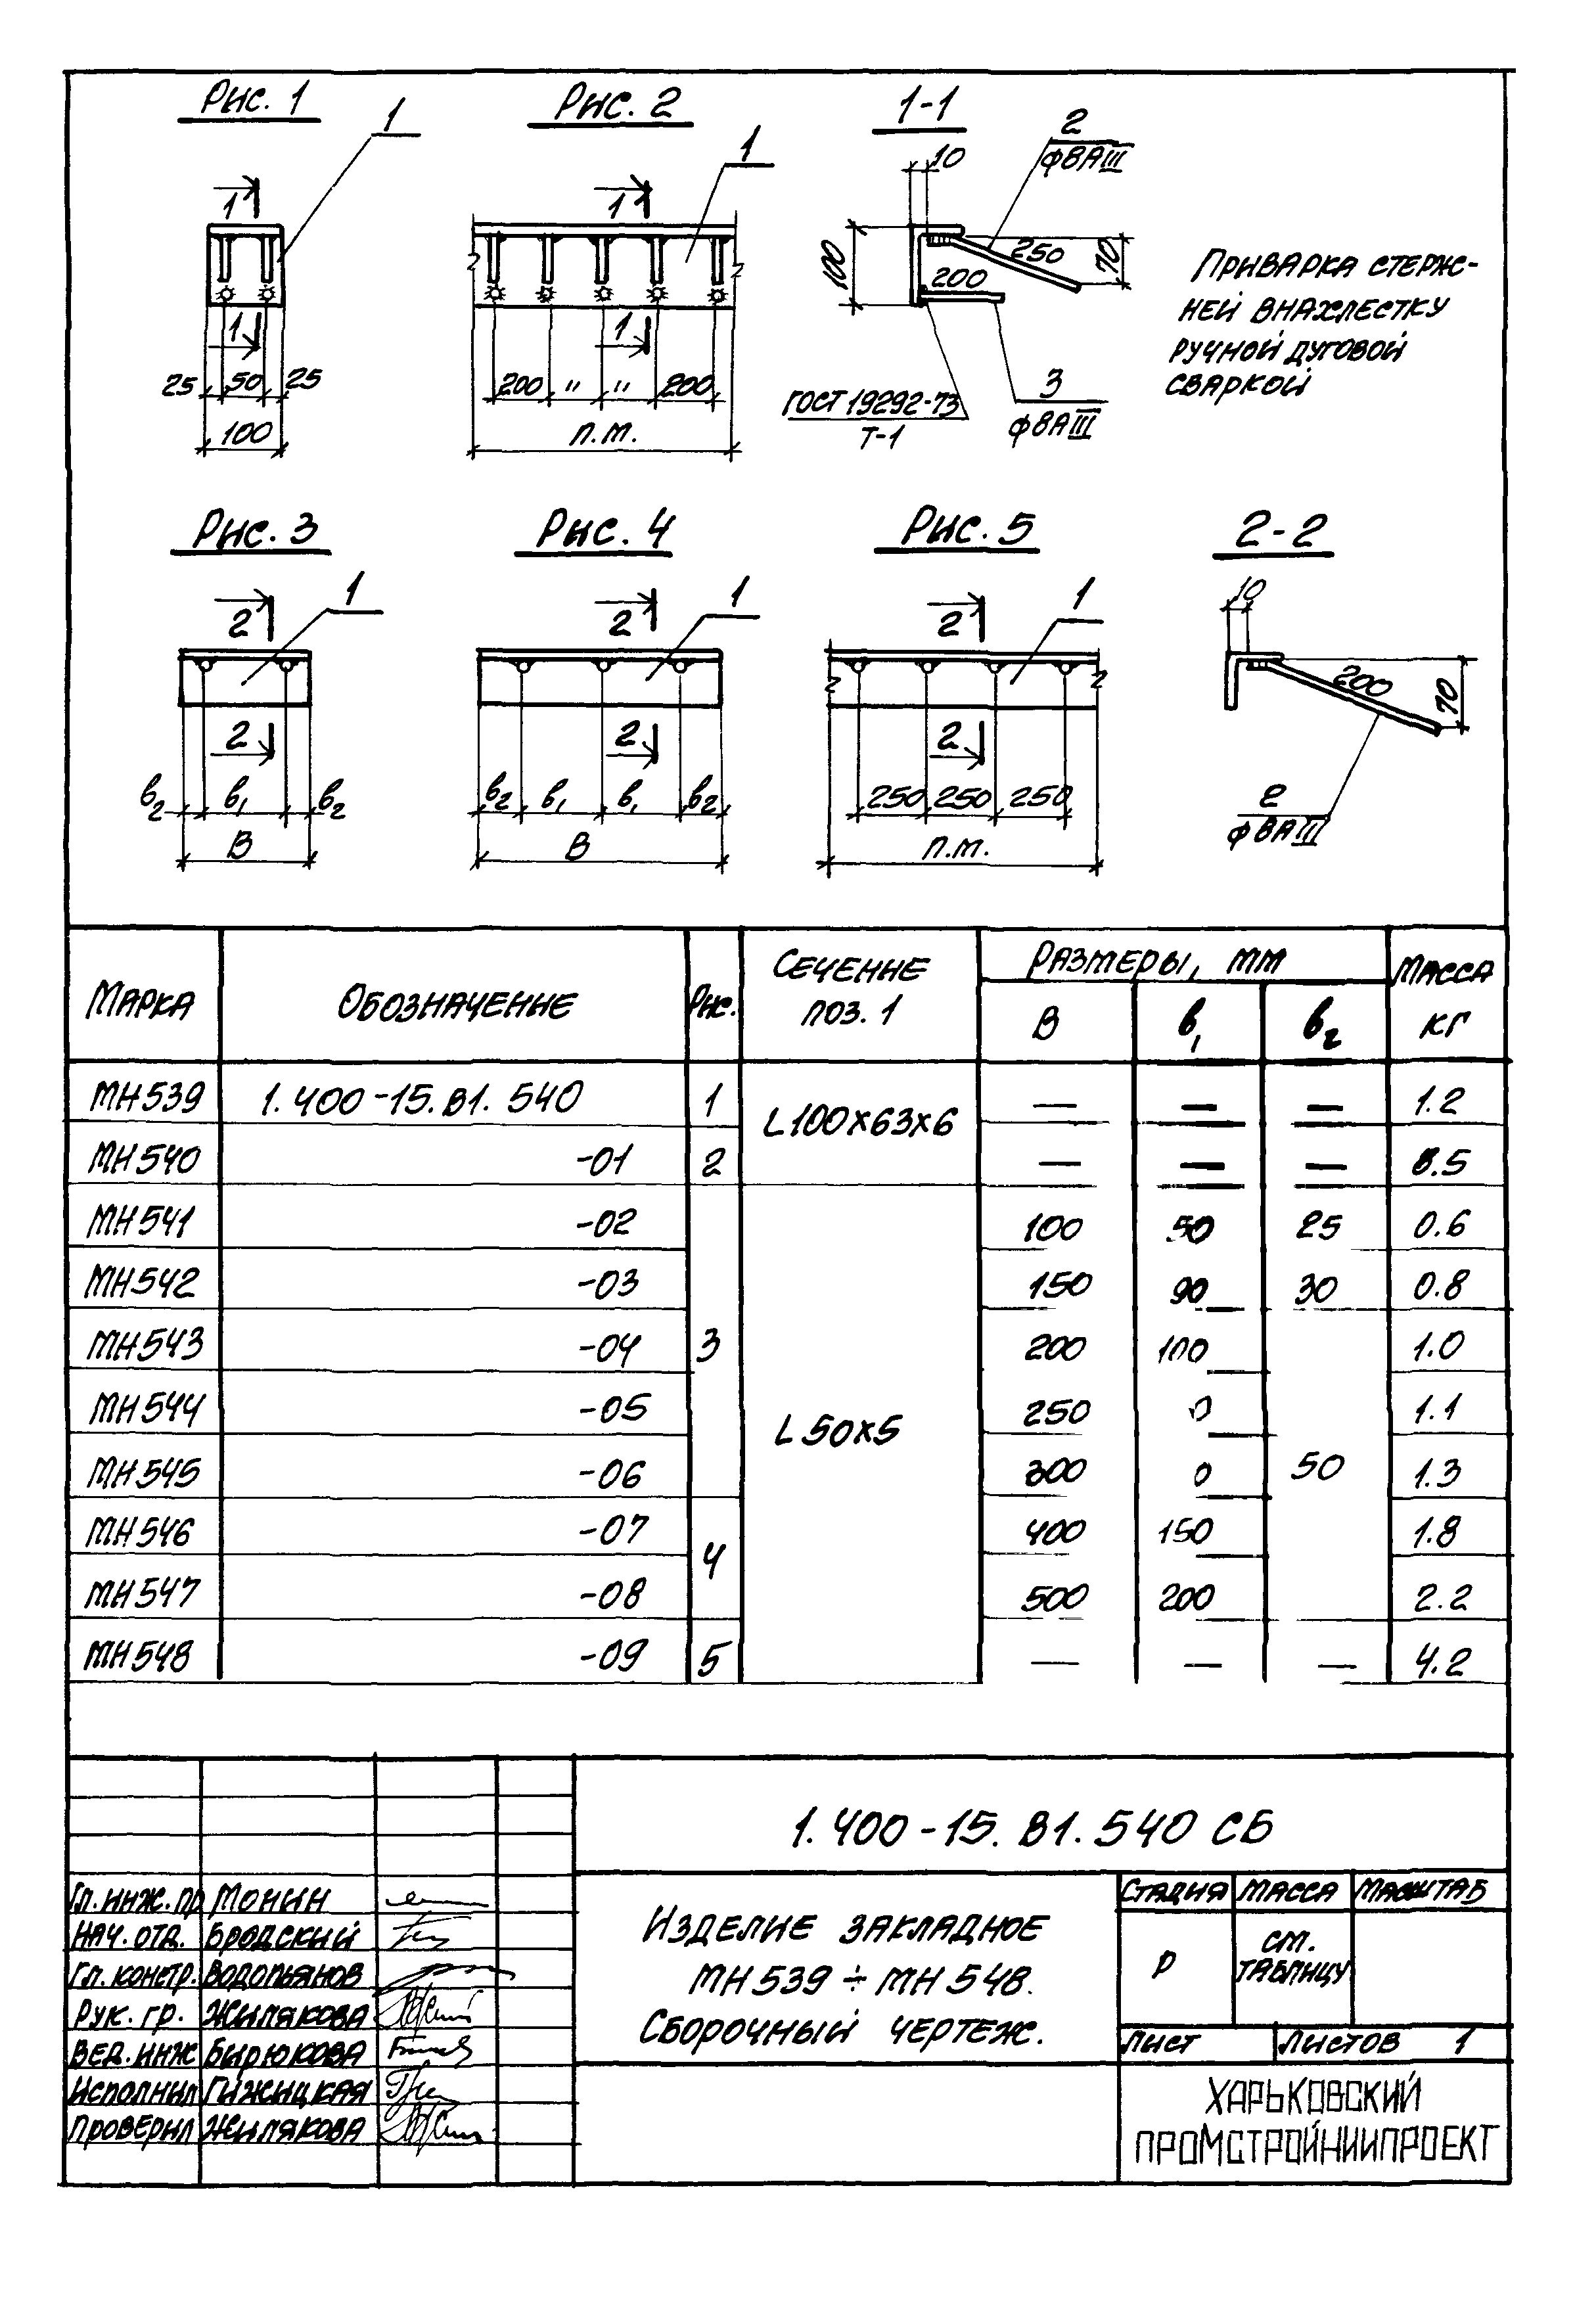 Рис. 1
1
Рис. 2
1
1-1
1
1
25 50 25
100
1
1
200 " " 200
п.м.
10
2
ф8АIII
100
250
200
70
ГОСТ 19292-73
Т-1
3
ф8АIII
Приварка стерж-
ней внахлестку
ручной дуговой
сваркой
Рис. 3
1
Рис. 4
1
Рис. 5
1
2-2
2
2
в2 в1 в2
В
2
2
в2 в1 в1 в2
В
2
2
250 250 250
п.м.
10
200
70
2
ф8АIII
Марка Обозначение Рис. Сечение поз. 1 Размеры, мм Масса кг
В в1 в2
МН539 1.400-15.В1.540 1 L100х63х6 — — — 1.2
МН540 -01 2 — — — 8.5
МН541 -02 100 50 25 0.6
МН542 -03 150 90 30 0.8
МН543 -04 3 200 100 1.0
МН544 -05 L50х5 250 1.1
МН545 -06 300 50 1.3
МН546 -07 4 400 150 1.8
МН547 -08 500 200 2.2
МН548 -09 5 — — — 4.2
1.400-15.В1.540 СБ
Гл.инж.пр Монин
Нач.отд. Бродский
Гл.констр. Водопьянов
Рук.гр. Жилякова
Вед.инж Бирюкова
Исполнил Гижицкая
Проверил Жилякова
Изделие закладное
МН539 ÷ МН548.
Сборочный чертеж.
Стадия Масса Масштаб
Р см. таблицу
Лист Листов 1
ХАРЬКОВСКИЙ
ПРОМСТРОЙНИИПРОЕКТ